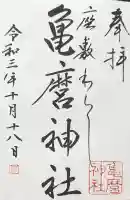 奉拝
座敷わらし
亀麿神社
令和三年十月十八日
亀麿
神社